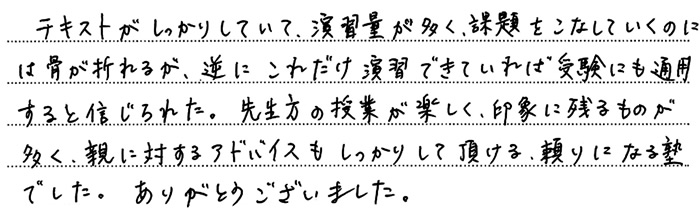 テキストがしっかりしていて、演習量が多く、課題をこなしていくのに
は骨が折れるが、逆にこれだけ演習できていれば受験にも通用
すると信じられた。先生方の授業が楽しく、印象に残るものが
多く、親に対するアドバイスもしっかりして頂ける、頼りになる塾
でした。ありがとうございました。